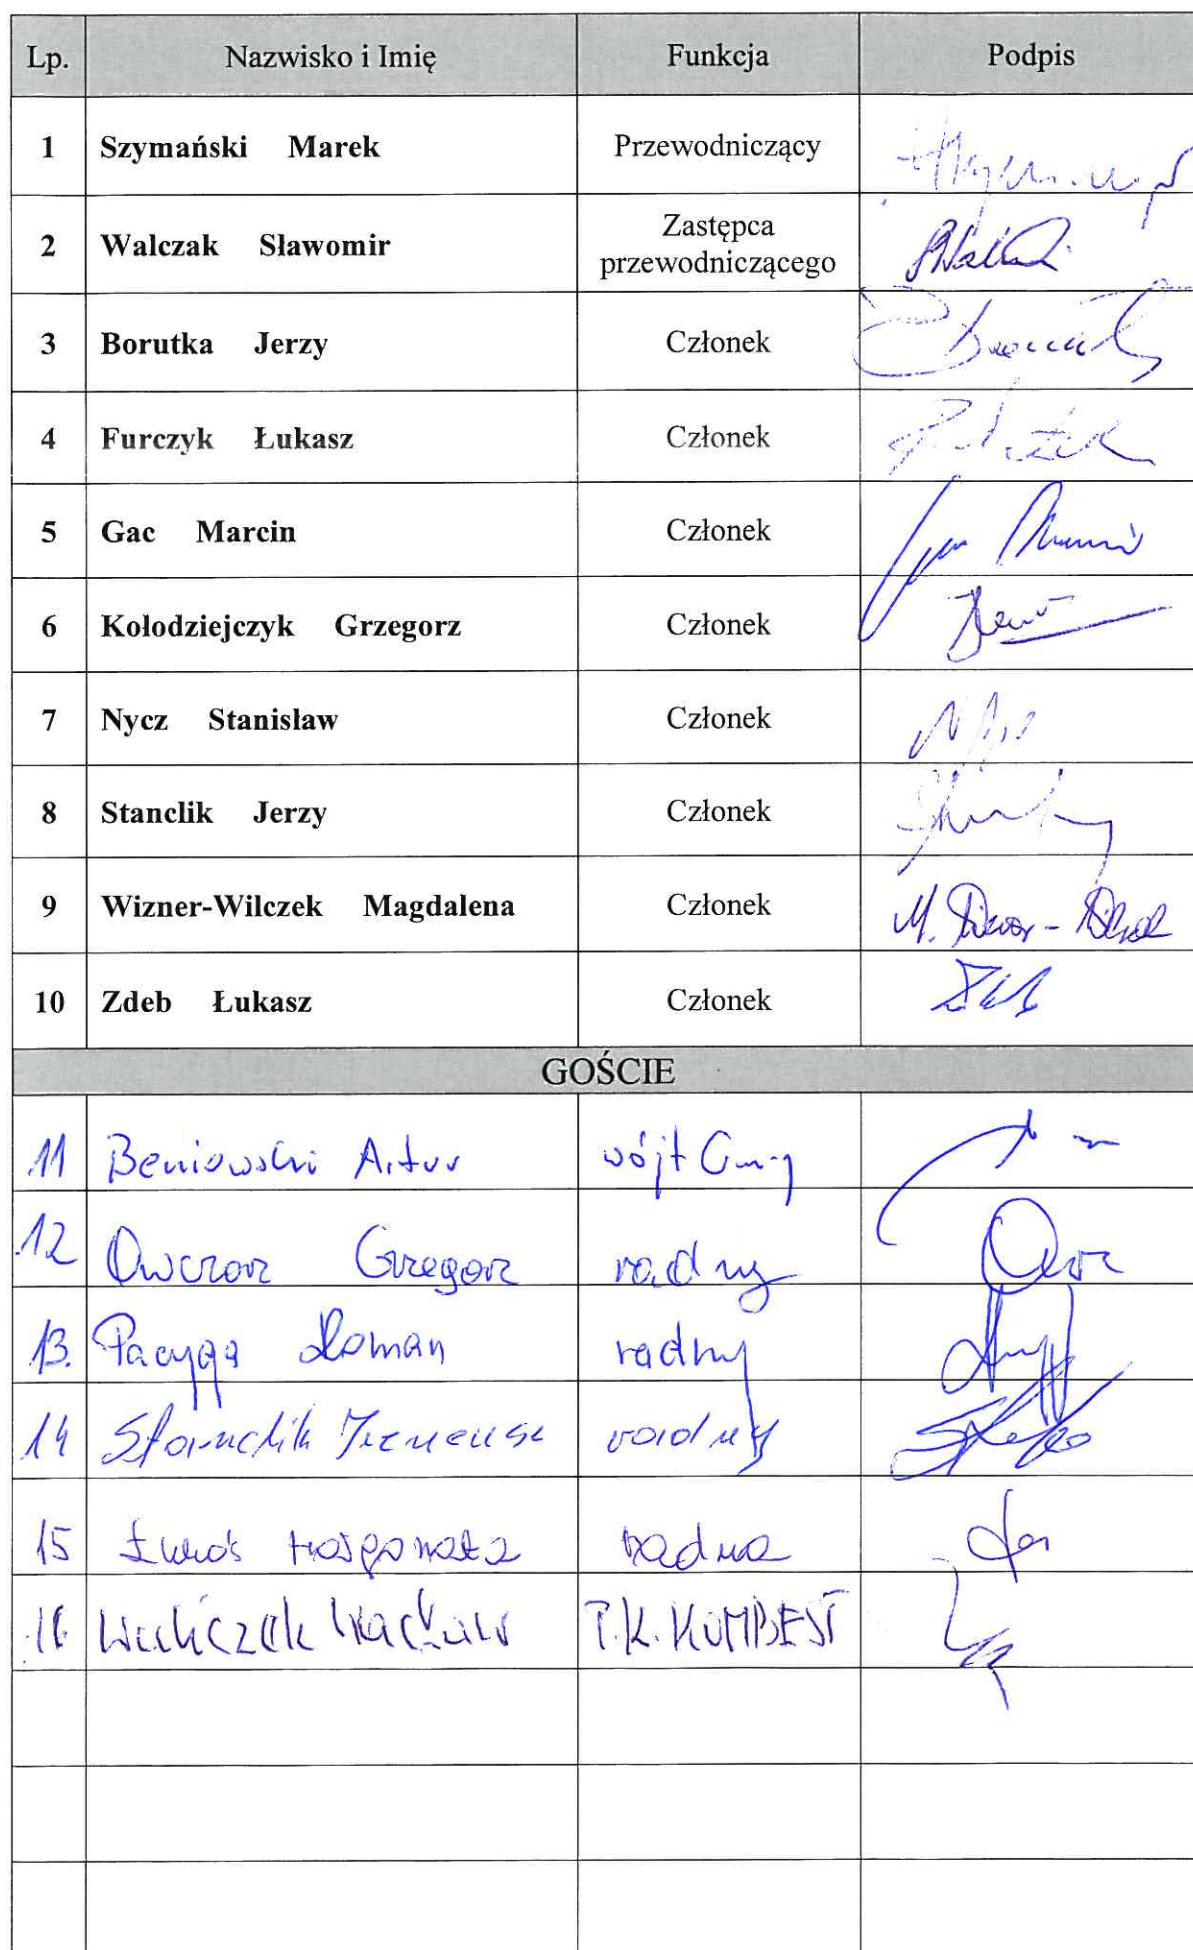 Lp. Nazwisko i Imię Funkcja Podpis
1 Szymański Marek Przewodniczący
2 Walczak Sławomir Zastępca przewodniczącego
3 Borutka Jerzy Członek
4 Furczyk Łukasz Członek
5 Gac Marcin Członek
6 Kołodziejczyk Grzegorz Członek
7 Nycz Stanisław Członek
8 Stanclik Jerzy Członek
9 Wizner-Wilczek Magdalena Członek
10 Zdeb Łukasz Członek
GOŚCIE
11 Beniowski Artur wójt Gminy
12 Owczarz Grzegorz radny
13. Pacyga Roman radny
14 Stanclik Ireneusz radny
15 Małgorzata radna
16 Wacław P.K. KOMBEST